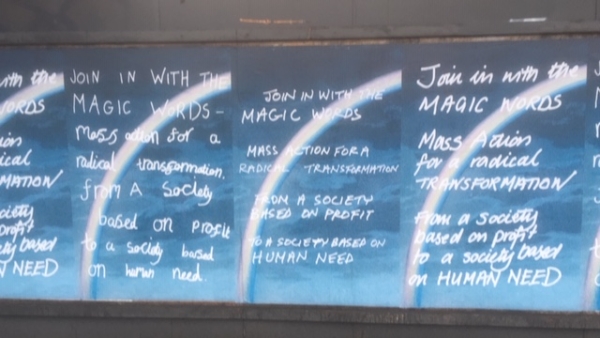 with the
WORDS
MATION
based
NEED
JOIN IN WITH THE
MAGIC WORDS -
Mass action for a
radical transformation,
from A Society
based on profit
to a society based
on human need.
JOIN IN WITH THE
MAGIC WORDS
MASS ACTION FOR A
RADICAL TRANSFORMATION
FROM A SOCIETY
BASED ON PROFIT
TO A SOCIETY BASED ON
HUMAN NEED
Join in with the
MAGIC WORDS
Mass Action
for a radical
TRANSFORMATION
From a society
based on profit
to a society based
on HUMAN NEED